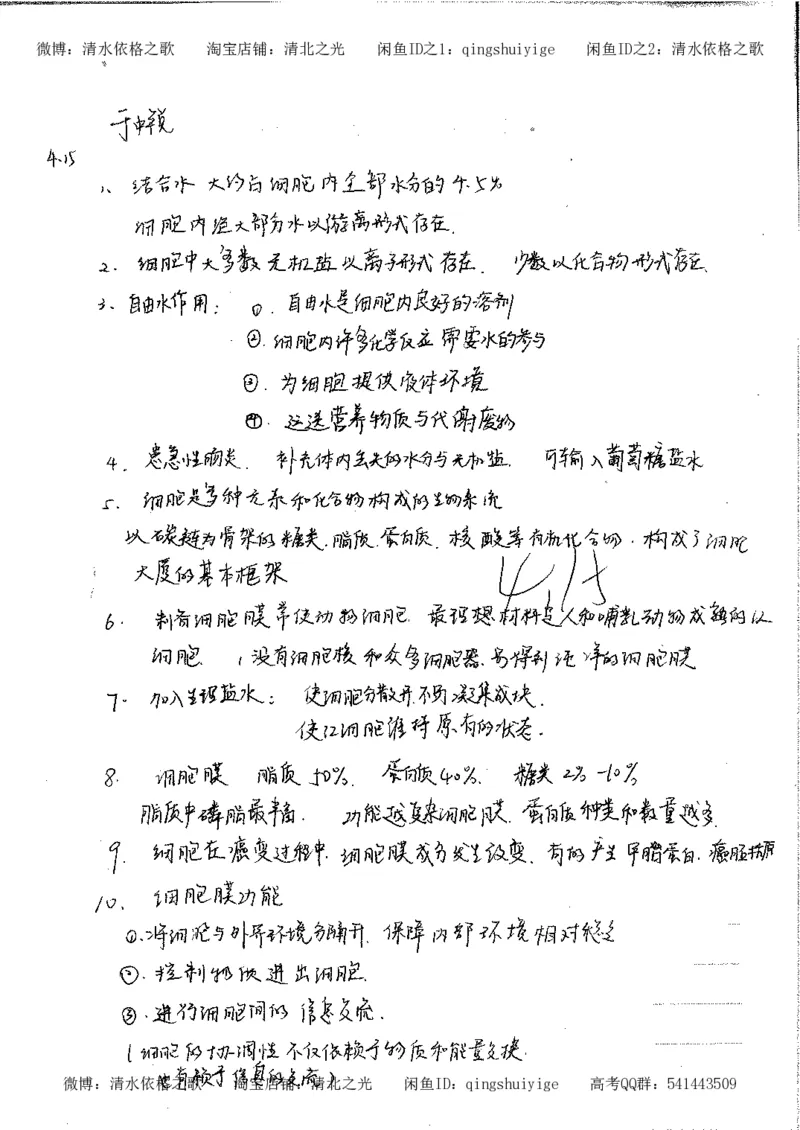 微博：清水依格之歌 淘宝店铺：清北之光 闲鱼ID之1：qingshuiyige 闲鱼ID之2：清水依格之歌
4.15
1、结合水 大约占细胞内全部水分的4.5%
细胞内绝大部分水以游离形式存在.
2. 细胞中大多数无机盐以离子形式存在. 少数以化合物形式存在.
3、自由水作用： ①. 自由水是细胞内良好的溶剂
②. 细胞内许多化学反应需要水的参与
③. 为细胞提供液体环境
④. 运送营养物质与代谢废物
4. 患急性肠炎. 补充体内丢失的水分与无机盐. 可输入葡萄糖盐水
5. 细胞是多种元素和化合物构成的生物系统
以碳链为骨架的糖类.脂质.蛋白质.核酸等有机化合物.构成了细胞
大厦的基本框架
4/15
6. 制备细胞膜常使动物细胞. 最理想材料是人和哺乳动物成熟的红
细胞. 没有细胞核和众多细胞器.易得到纯净的细胞膜
7. 加入生理盐水： 使细胞分散开不易凝集成块.
使红细胞维持原有的状态.
8. 细胞膜 脂质50%. 蛋白质40%. 糖类2%-10%
脂质中磷脂最丰富. 功能越复杂细胞膜.蛋白质种类和数量越多.
9. 细胞在癌变过程中.细胞膜成分发生改变.有的产生甲胎蛋白.癌胚抗原
10. 细胞膜功能
①.将细胞与外界环境分隔开.保障内部环境相对稳定
②.控制物质进出细胞.
③.进行细胞间的信息交流.
(细胞的协调性不仅依赖于物质和能量交换.
也有赖于信息的交流)
微博：清水依格之歌 淘宝店铺：清北之光 闲鱼ID：qingshuiyige 高考QQ群：541443509